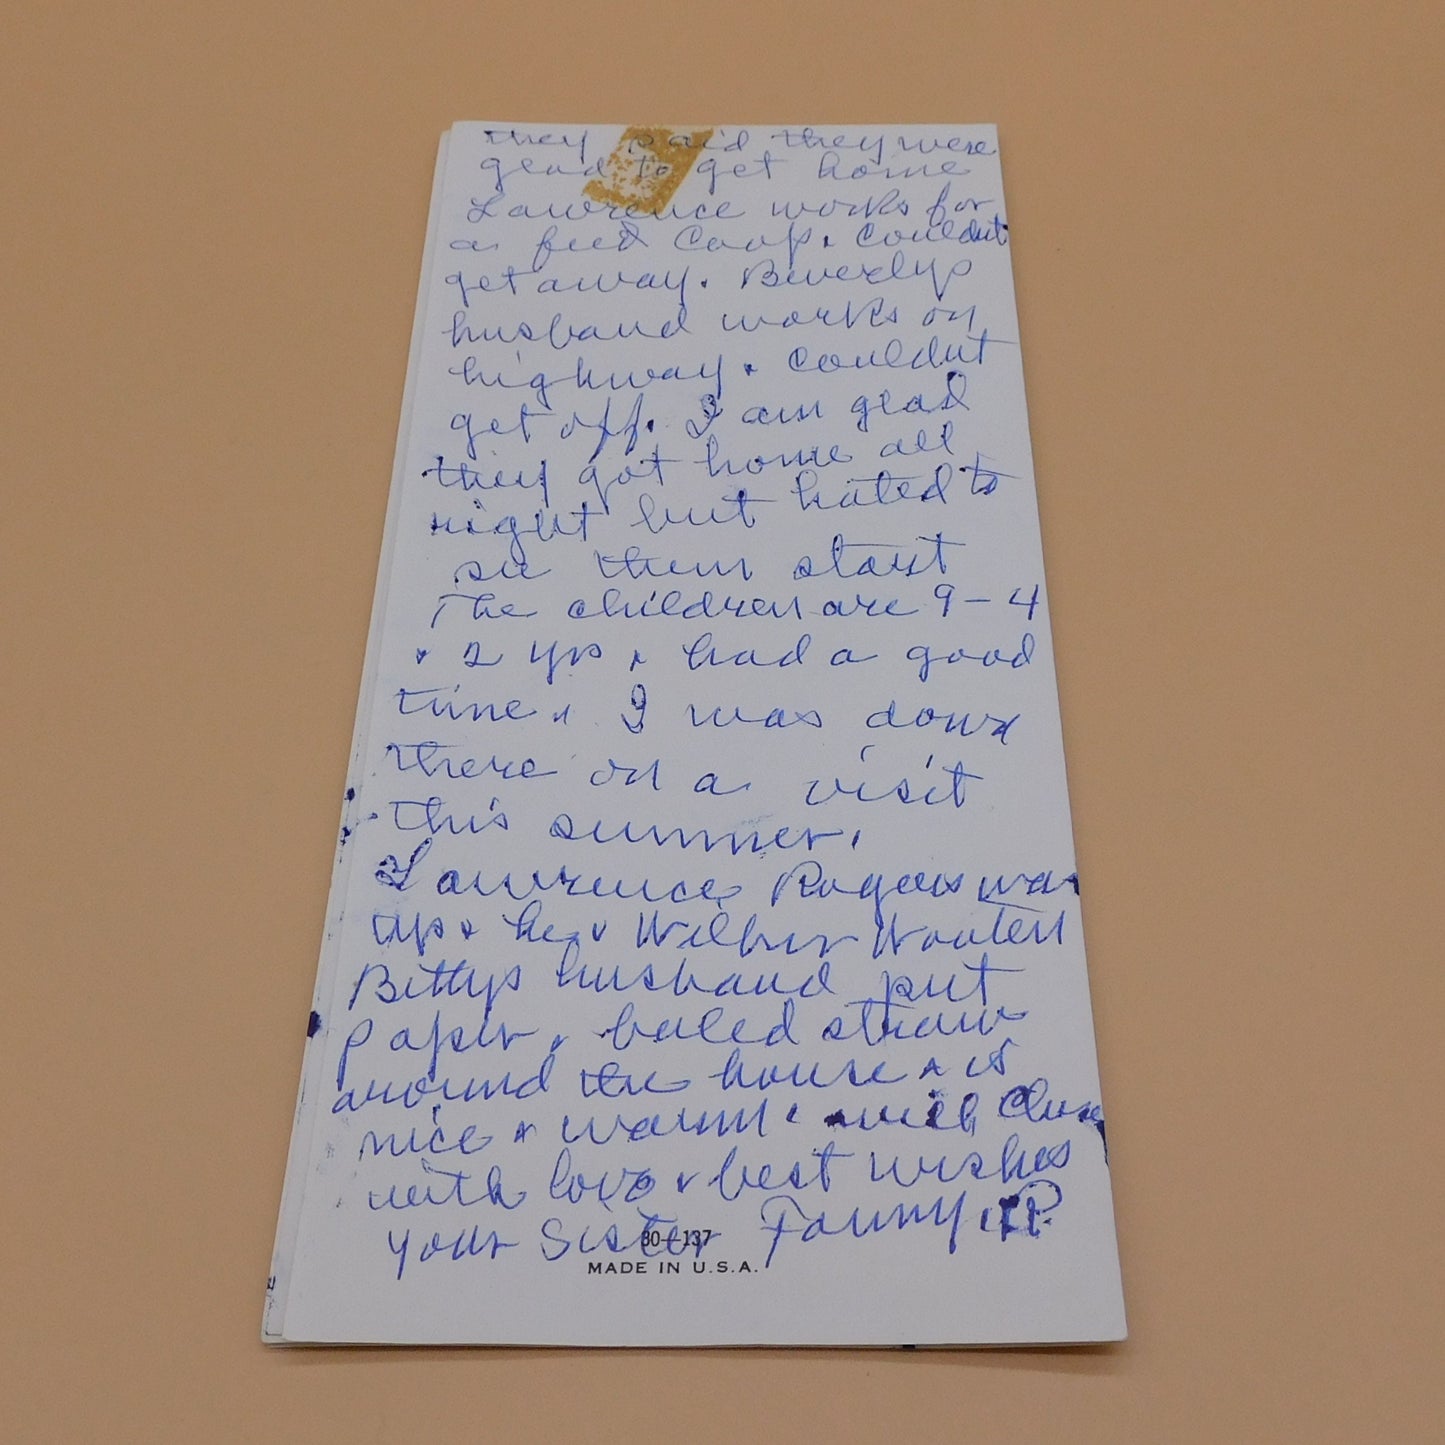 they said they were
glad to get home
Lawrence works for
a feed Coop & couldnt
get away. Beverlys
husband works on
highway & couldnt
get off. I am glad
they got home all
right but hated to
see them start
The children are 9 - 4
& 2 yrs & had a good
time. I was down
there on a visit
this summer.
Lawrence Rogers was
up & he & Wilbur Wooten
Bettys husband put
paper & baled straw
around the house & is
nice & warm. will Close
with love & best wishes
your Sister Fanny R.
30-137
MADE IN U.S.A.